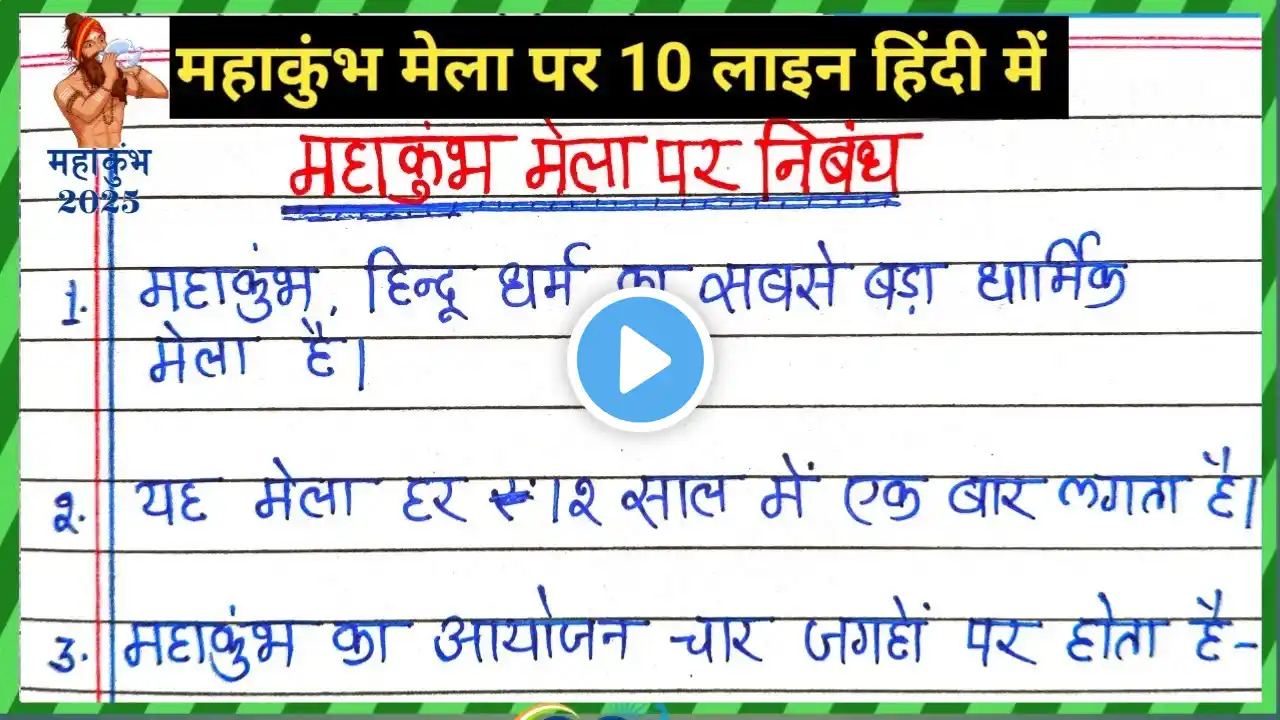 महाकुंभ मेला पर 10 लाइन हिंदी में
महाकुंभ
2025
महाकुंभ मेला पर निबंध
1. महाकुंभ, हिन्दू धर्म का सबसे बड़ा धार्मिक
मेला है।
2. यह मेला हर १२ साल में एक बार लगता है।
3. महाकुंभ का आयोजन चार जगहों पर होता है-